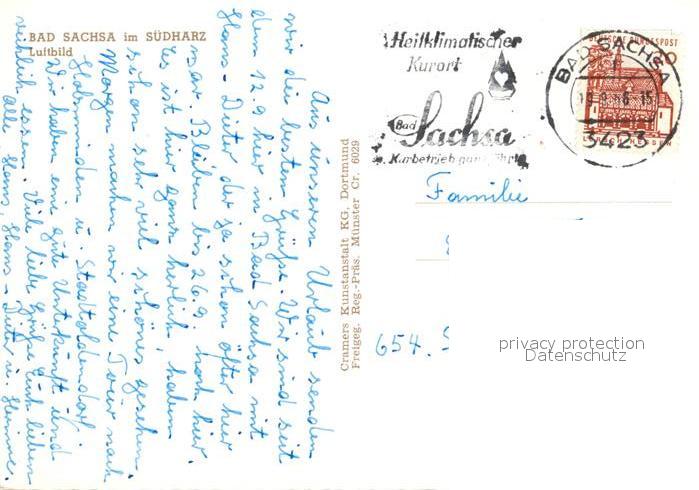 BAD SACHSA im SÜDHARZ
Luftbild
Aus unserem Urlaub senden
wir die besten Grüße. Wir sind seit
dem 12.9 hier in Bad Sachsa mit
Hans-Dieter der ja schon öfter hier
war. Bleiben bis 26.9. noch hier.
Es ist hier ganz herrlich, haben
schon sehr viel schönes gesehen.
Morgen machen wir eine Tour nach
Holzminden u. Stadtoldendorf.
Wir haben eine gute Unterkunft und
reichlich essen. Viele liebe Grüße Euch lieben
alle, Hans, Hans-Dieter u.
Cramers Kunstanstalt KG. Dortmund
Freigeg. Reg.-Präs. Münster Cr. 6029
Heilklimatischer
Kurort
Bad
Sachsa
Kurbetrieb ganzjährig
DEUTSCHE BUNDESPOST
BAD SACHSA
3423
Familie
654.
privacy protection
Datenschutz